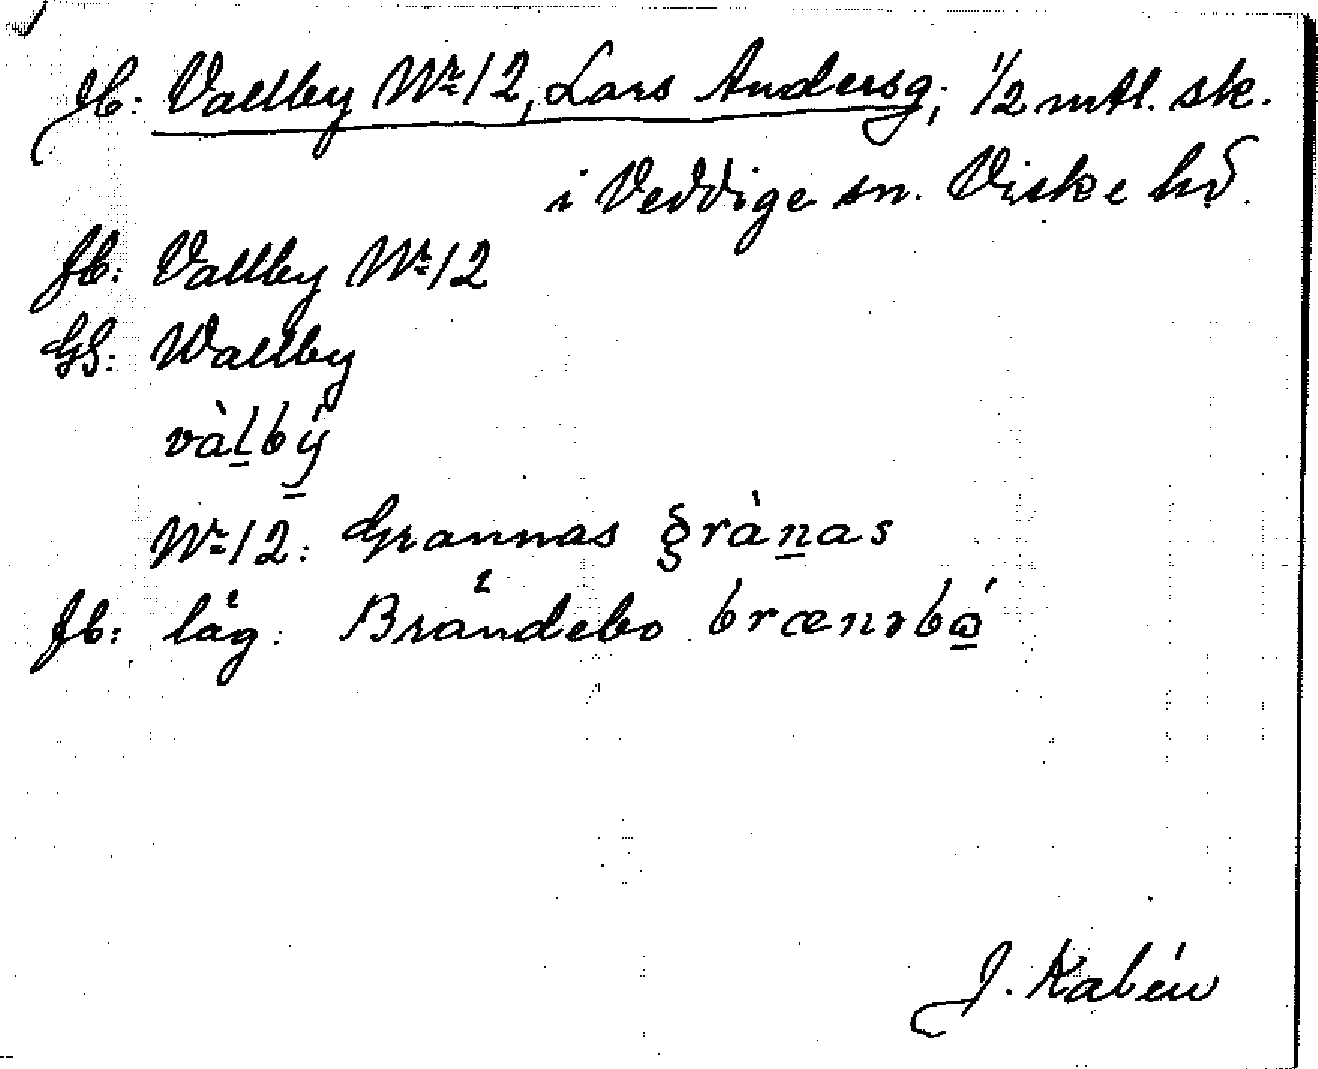 Jb: Vallby Nr 12, Lars Andersg, 1/2 mtl. sk.
i Veddige sn. Viske hd.
Jb: Vallby Nr 12
GS: Wallby
vàl̠bý̠
Nr 12: Grannas gràn̠as
Jb: läg: Brändebo brænəbώ̠
J. Kabén